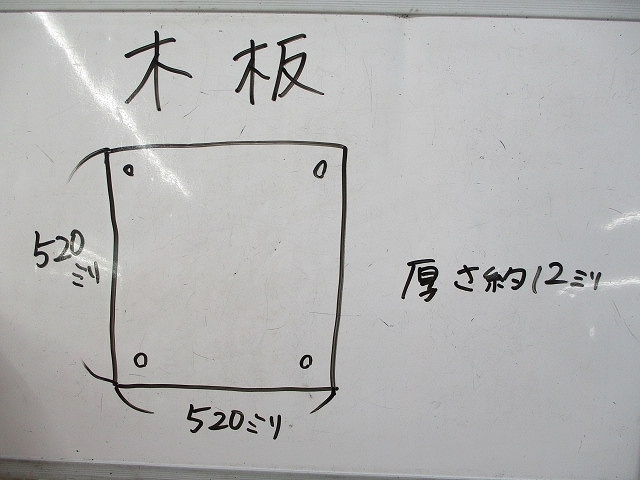 木板
520
ミリ
厚さ約12ミリ
520ミリ